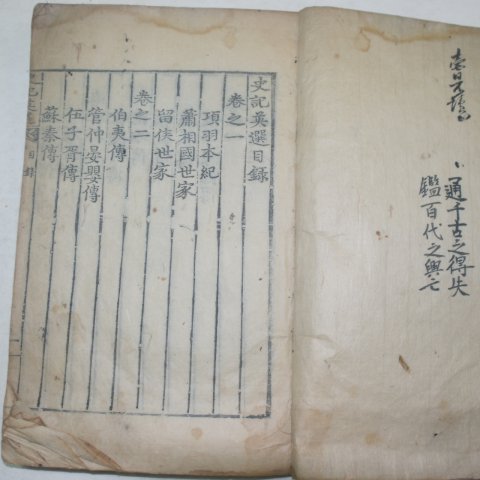 通千古之得失
鑑百代之興亡
史記英選目錄
卷之一
項羽本紀
蕭相國世家
留侯世家
卷之二
伯夷傳
管仲晏嬰傳
伍子胥傳
蘇秦傳
史記英選 目錄